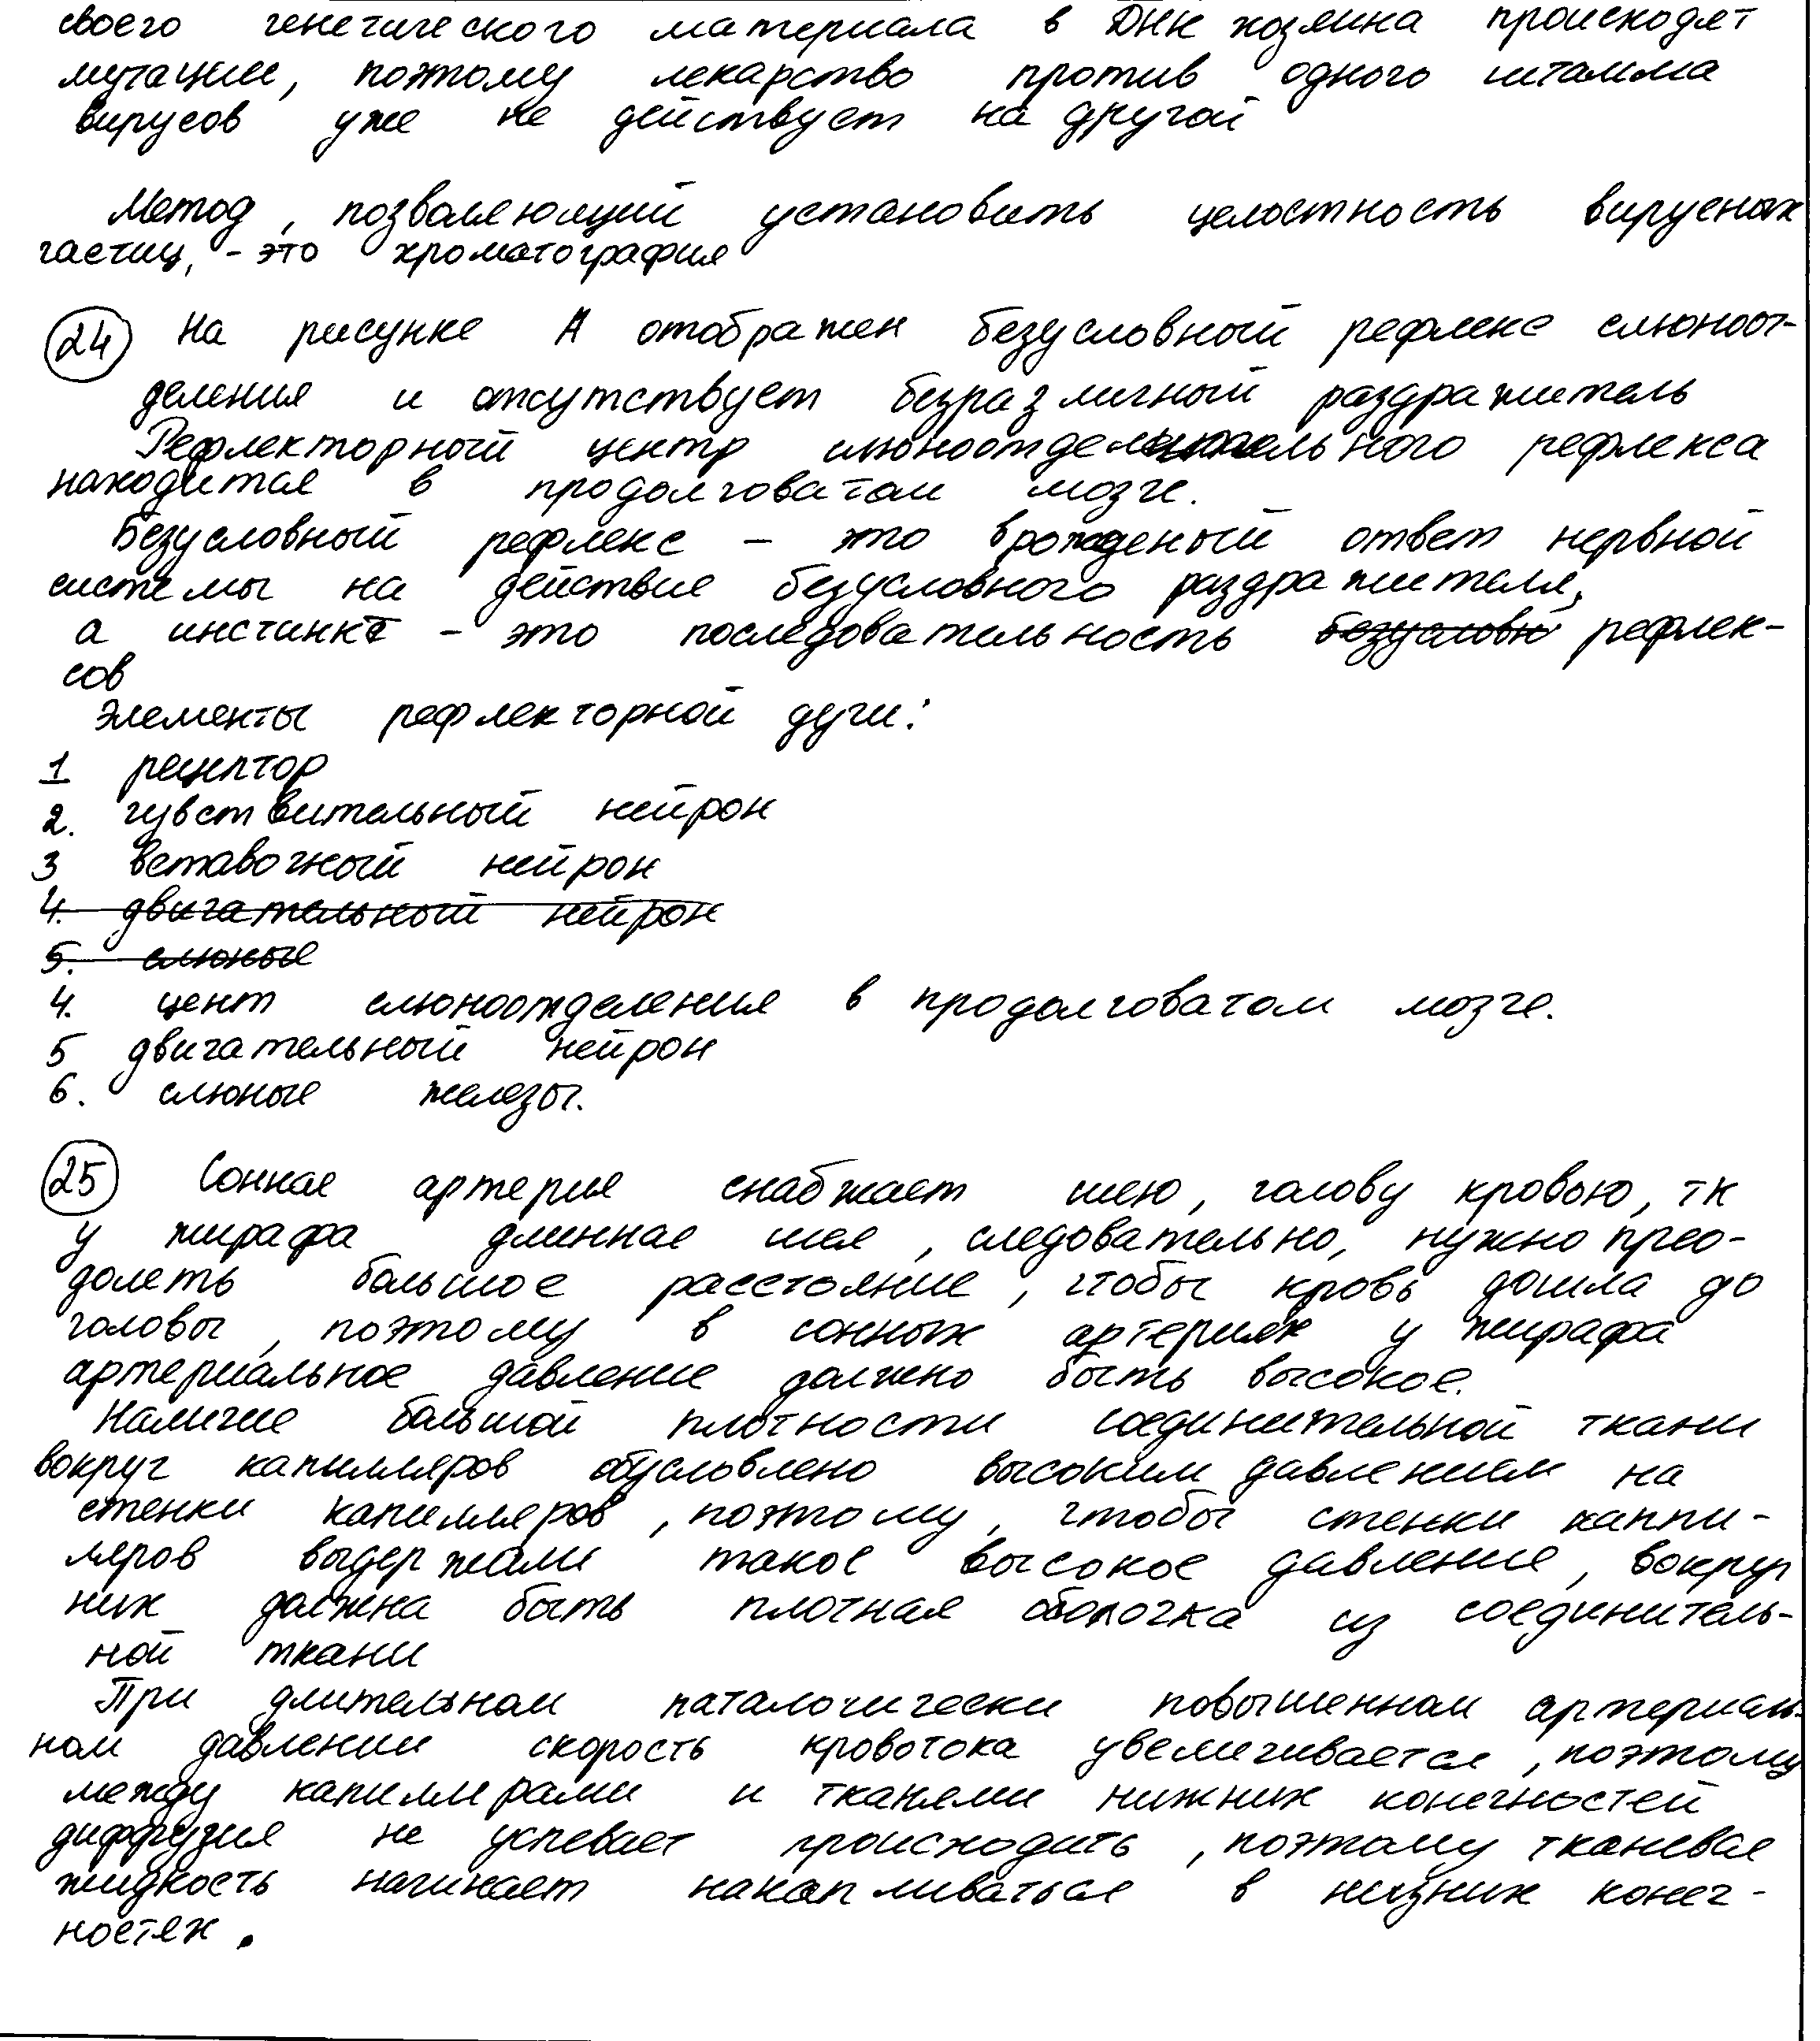 своего генетического материала в ДНК хозяина происходят
мутации, поэтому лекарство против одного штамма
вирусов уже не действует на другой
Метод, позволяющий установить целостность вирусных
частиц, - это хроматография
24 На рисунке А отображен безусловный рефлекс слюноот-
деления и отсутствует безразличный раздражитель
Рефлекторный центр слюноотделительного рефлекса
находится в продолговатом мозге.
Безусловный рефлекс - это врожденый ответ нервной
системы на действие безусловного раздражителя,
а инстинкт - это последовательность безусловн рефлек-
сов
Элементы рефлекторной дуги:
1 рецептор
2. чувствительный нейрон
3 вставочный нейрон
4. двигательный нейрон
5. слюные
4. цент слюноотделения в продолговатом мозге.
5 двигательный нейрон
6. слюные железы.
25 Сонная артерия снабжает шею, голову кровью, тк
у жирафа длинная шея, следовательно, нужно прео-
долеть большое расстояние, чтобы кровь дошла до
головы, поэтому в сонных артериях у жирафа
артериальное давление должно быть высокое.
Наличие большой плотности соединительной ткани
вокруг капилляров обусловлено высоким давлением на
стенки капилляров, поэтому, чтобы стенки каппи-
ляров выдержали такое высокое давление, вокруг
них должна быть плотная оболочка из соединитель-
ной ткани
При длительном паталогически повышенном артериаль-
ном давлении скорость кровотока увеличивается, поэтому
между капиллярами и тканями нижних конечностей
диффузия не успевает происходить, поэтому тканевая
жидкость начинает накапливаться в нижних конеч-
ностях.